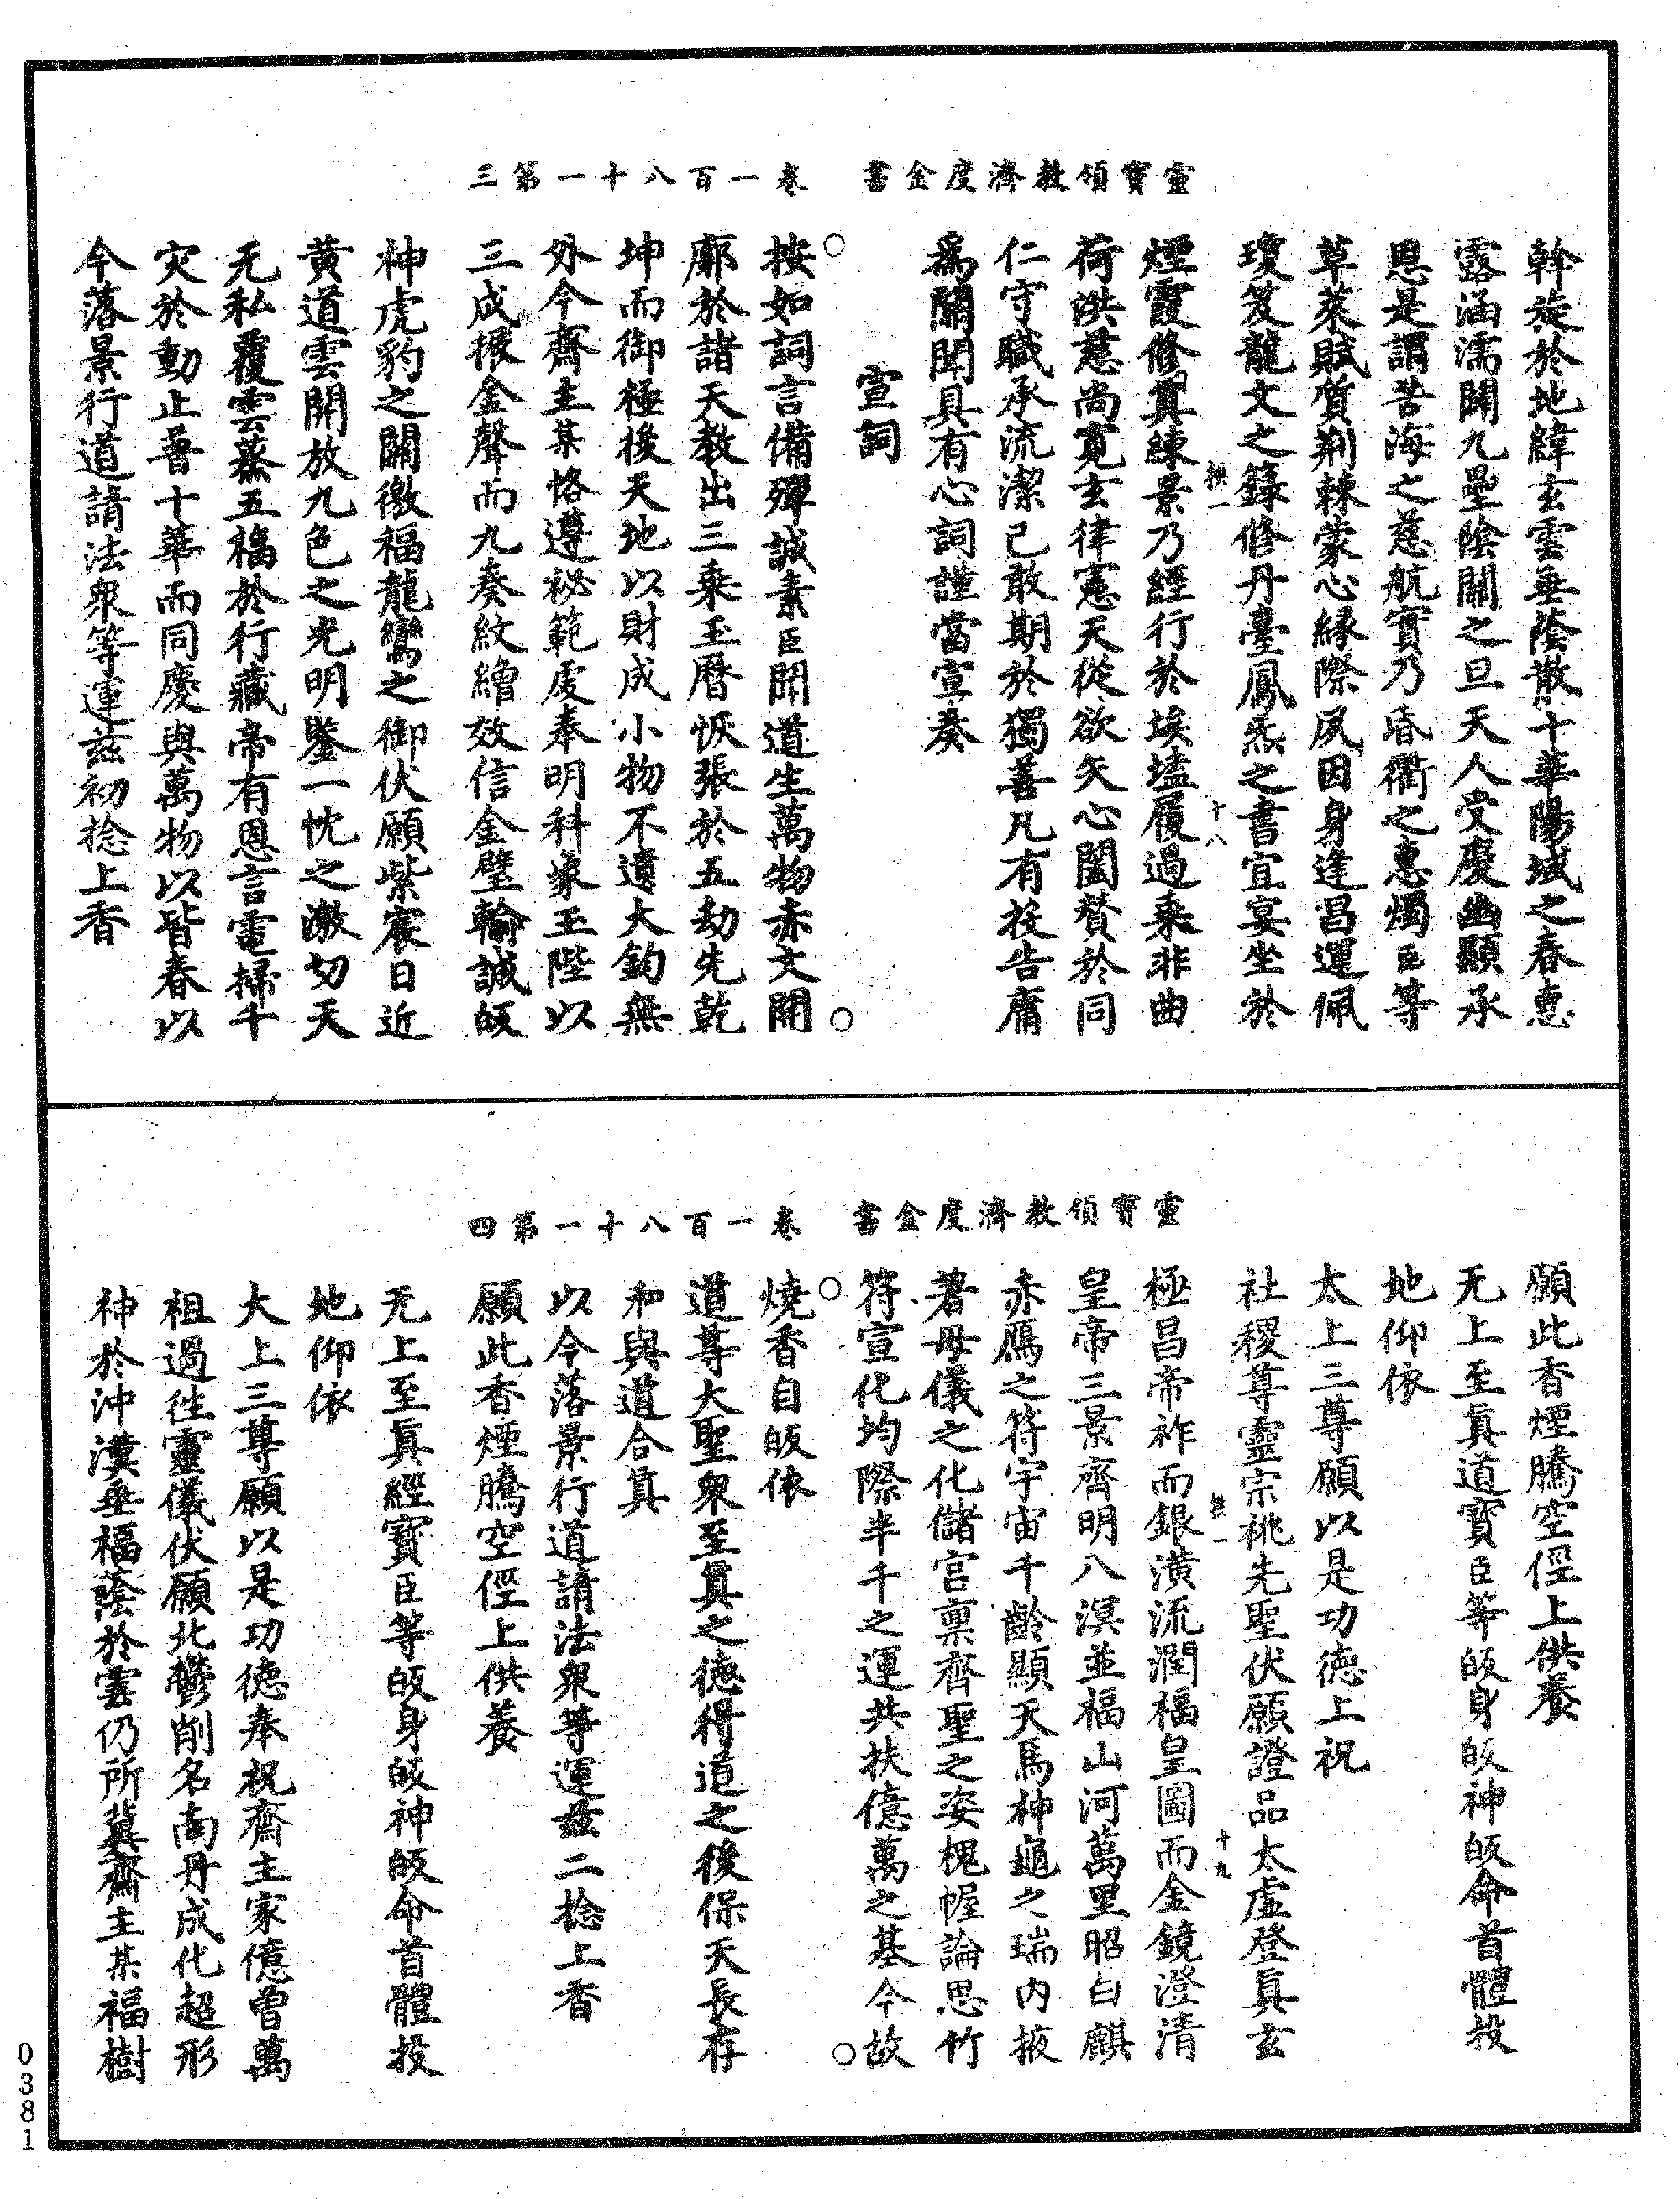 靈寶領教濟度金書　卷一百八十一第三
斡旋於地緯玄雲垂蔭散十華陽域之春惠
露涵濡闢九壘陰關之旦天人受慶幽顯承
恩是謂苦海之慈航實乃昏衢之惠燭臣等
草萊賦質荆棘蒙心緣際夙因身逢昌運佩
瓊笈龍文之籙修丹臺鳳炁之書宜宴坐於
煙霞修真練景乃經行於埃壒履過乘非曲
荷洪慈尚寬玄律憲天從欲矢心闔贊於同
仁守職承流潔己敢期於獨善凡有投告庸
爲關聞具有心詞謹當宣奏
宣詞
按如詞言備殫誠素臣聞道生萬物赤文開
廓於諸天教出三乘玉曆恢張於五劫先乾
坤而御極後天地以財成小物不遺大鈞無
外今齋主某恪遵祕範虔奉明科蒙玉陛以
三成振金聲而九奏紋繒效信金璧輸誠皈
神虎豹之關徼福龍鸞之御伏願紫宸日近
黃道雲開放九色之光明鑒一忱之激切天
无私覆雲蒸五福於行藏帝有恩言電掃千
灾於動止普十華而同慶與萬物以皆春以
今落景行道請法衆等運兹初捻上香
靈寶領教濟度金書　卷一百八十一第四
願此香煙騰空俓上供養
无上至眞道寶臣等皈身皈神皈命首體投
地仰依
太上三尊願以是功德上祝
社稷尊靈宗祧先聖伏願證品太虛登眞玄
極昌帝祚而銀潢流潤福皇圖而金鏡澄清
皇帝三景齊明八溟並福山河萬里昭白麒
赤鴈之符宇宙千齡顯天馬神龜之瑞内掖
著母儀之化儲宮稟齊聖之姿槐幄論思竹
符宣化均際半千之運共扶億萬之基今故
燒香自皈依
道尊大聖衆至眞之德得道之後保天長存
和與道合眞
以今落景行道請法衆等運兹二捻上香
願此香煙騰空俓上供養
无上至眞經寶臣等皈身皈神皈命首體投
地仰依
大上三尊願以是功德奉祝齋主家億曾萬
祖過往靈儀伏願北鬱削名南丹成化超形
神於沖漠垂福蔭於雲仍所冀齋主某福樹
0381